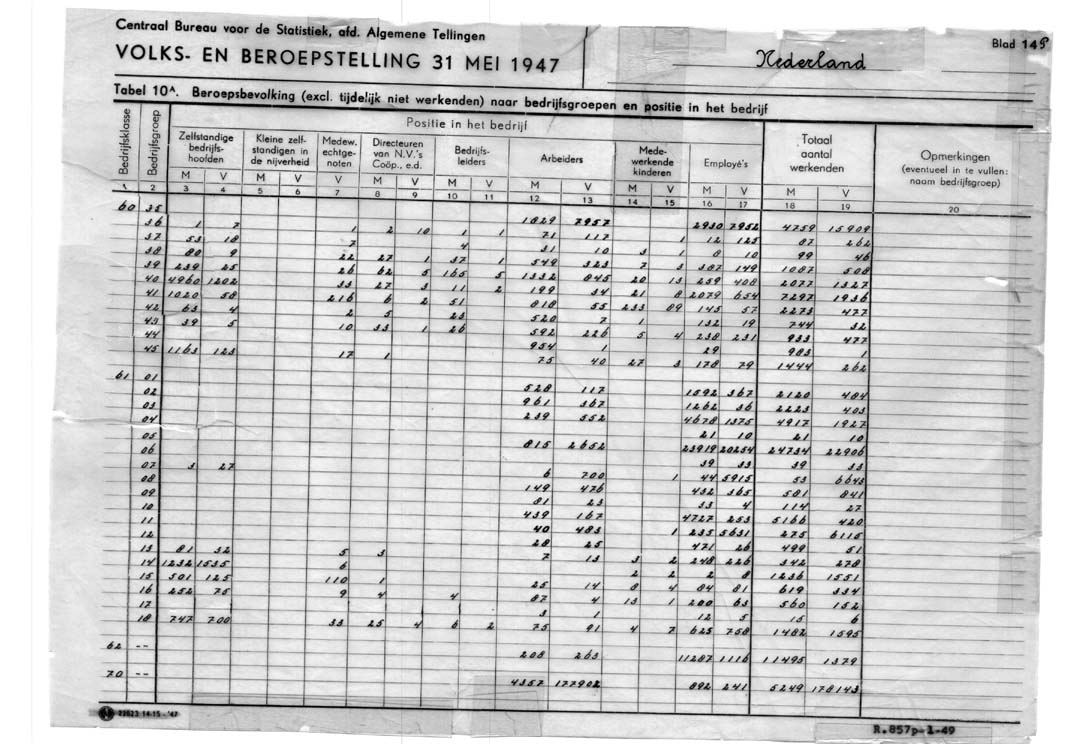 Centraal Bureau voor de Statistiek, afd. Algemene Tellingen
VOLKS- EN BEROEPSTELLING 31 MEI 1947
Nederland
Blad 149
Tabel 10ᴬ. Beroepsbevolking (excl. tijdelijk niet werkenden) naar bedrijfsgroepen en positie in het bedrijf
Bedrijfsklasse
Bedrijfsgroep
Positie in het bedrijf
Zelfstandige bedrijfs-hoofden
Kleine zelf-standigen in de nijverheid
Medew. echtge-noten
Directeuren van N.V.'s Coöp., e.d.
Bedrijfs-leiders
Arbeiders
Mede-werkende kinderen
Employé's
Totaal aantal werkenden
Opmerkingen (eventueel in te vullen: naam bedrijfsgroep)
M V M V V M V M V M V M V M V M V
1 2 3 4 5 6 7 8 9 10 11 12 13 14 15 16 17 18 19 20
60 35 1829 7957 2930 7952 4759 15909
36 1 7 1 2 10 1 1 71 117 1 12 125 87 262
37 53 18 7 4 31 10 3 1 8 10 99 46
38 80 9 22 27 1 37 1 549 323 7 3 387 149 1087 508
39 239 25 26 62 5 165 5 1332 845 20 13 259 408 2077 1327
40 4960 1202 33 27 3 11 2 199 34 21 8 2079 654 7297 1936
41 1020 58 216 6 2 51 818 55 233 89 145 57 2273 477
42 63 4 2 5 23 520 7 1 132 19 744 32
43 39 5 10 33 1 26 592 226 5 4 238 231 933 477
44 954 1 29 983 1
45 1163 123 17 1 75 40 27 3 178 79 1444 262
61 01 528 117 1592 367 2120 484
02 961 367 1262 36 2223 403
03 239 552 4678 1375 4917 1927
04 21 10 21 10
05 815 2652 23919 20254 24734 22906
06 39 33 39 33
07 3 27 6 700 1 44 5915 53 6643
08 149 476 432 365 581 841
09 81 23 33 4 114 27
10 439 167 4727 253 5166 420
11 40 483 1 235 5631 275 6115
12 28 25 471 26 499 51
13 81 32 5 3 7 13 3 2 248 226 342 278
14 1232 1535 6 2 2 2 8 1236 1551
15 501 125 110 1 25 14 8 4 84 81 619 334
16 252 75 9 4 4 87 4 13 1 200 63 560 152
17 3 1 12 5 15 6
18 747 700 33 25 4 6 2 75 91 4 7 625 758 1482 1595
62 -- 208 263 11287 1116 11495 1379
70 -- 4357 177902 892 241 5249 178143
22623 14-15-'47
R.857p-1-49